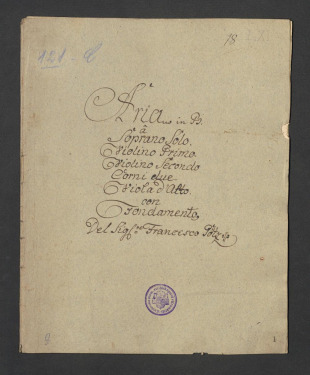 18
121 - C
Aria in B.
à
Soprano Solo.
Violino Primo
Violino Secondo
Corni due
Viola d'Alto.
con
Fondamento,
Del Sigre Francesco